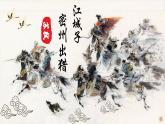 江城子
密州出猎
苏轼